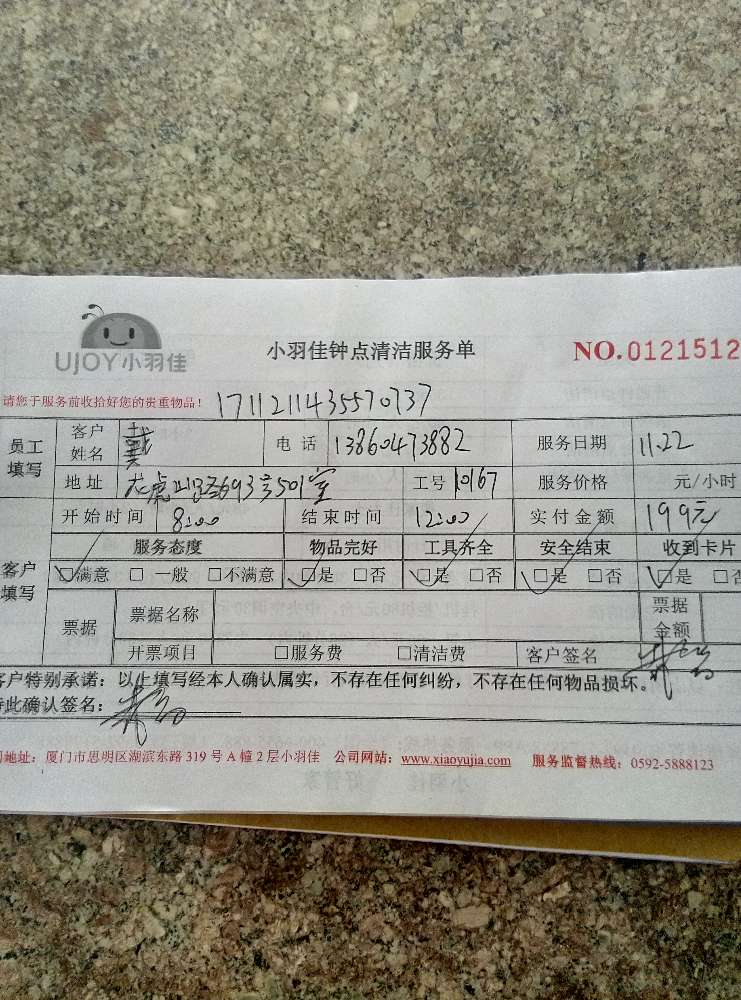 UJOY小羽佳
小羽佳钟点清洁服务单
NO.0121512
请您于服务前收拾好您的贵重物品! 1711211435570737
员工填写 客户姓名 戴 电话 13860473882 服务日期 11.22
地址 龙虎山路693号501室 工号 10167 服务价格 元/小时
客户填写 开始时间 8:00 结束时间 12:00 实付金额 199元
服务态度 物品完好 工具齐全 安全结束 收到卡片
☑满意 □一般 □不满意 ☑是 □否 ☑是 □否 ☑是 □否 ☑是 □否
票据 票据名称 票据金额
开票项目 □服务费 □清洁费 客户签名
客户特别承诺：以上填写经本人确认属实，不存在任何纠纷，不存在任何物品损坏。
特此确认签名：
地址：厦门市思明区湖滨东路 319 号 A 幢 2 层小羽佳 公司网站：www.xiaoyujia.com 服务监督热线：0592-5888123